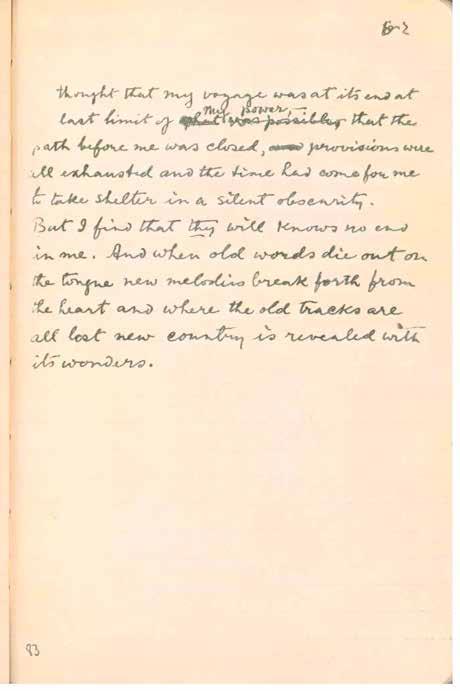 thought that my voyage was at its end at
my power,—
last limit of what was possible, that the
path before me was closed, and provisions were
all exhausted and the time had come for me
to take shelter in a silent obscurity.
But I find that thy will knows no end
in me. And when old words die out on
the tongue new melodies break forth from
the heart and where the old tracks are
all lost new country is revealed with
its wonders.
83